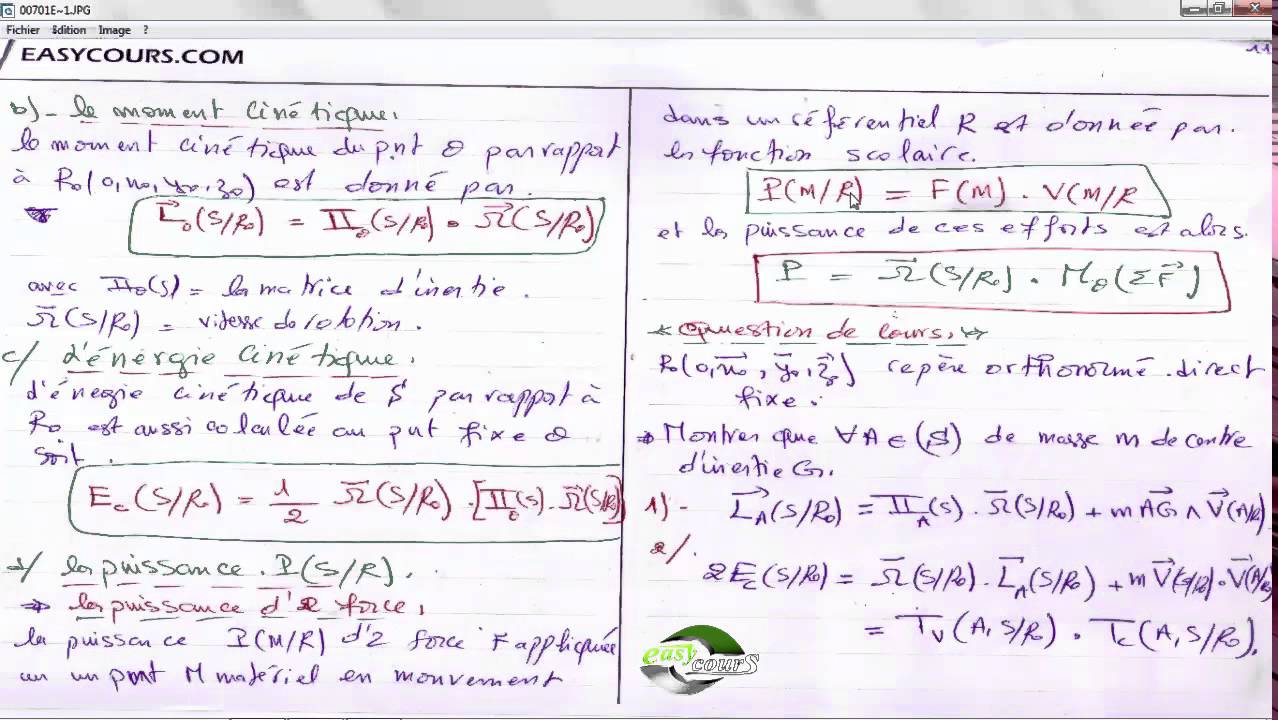 00701E~1.JPG
Fichier Edition Image ?
EASYCOURS.COM
11
b)- le moment cinétique.
le moment cinétique du pnt O par rapport
à R₀(0,x₀,y₀,z₀) est donné par.
L⃗₀(S/R₀) = II₀(S/R₀) • Ω⃗(S/R₀)
avec II₀(S) = la matrice d'inertie.
Ω⃗(S/R₀) = vitesse de rotation.
c/ d'énergie cinétique.
d'énergie cinétique de S par rapport à
R₀ est aussi calculée au pnt fixe O
soit.
Ec(S/R₀) = 1/2 Ω⃗(S/R₀) . [II₀(S) . Ω⃗(S/R₀)]
d/ la puissance . P(S/R).
⇒ la puissance d'1 force,
la puissance P(M/R) d'1 force F appliquée
un pnt M matériel en mouvement
dans un référentiel R est donnée par.
la fonction scolaire.
P(M/R) = F(M) . V(M/R
et la puissance de ces efforts est alors.
P = Ω⃗(S/R₀) . M₀(ΣF⃗)
Question de cours.
R₀(0,x⃗₀,y⃗₀,z⃗₀) repère orthonormé direct
fixe.
⇒ Montrer que ∀A∈(S) de masse m de centre
d'inertie G.
1)- L⃗A(S/R₀) = IIA(S) . Ω⃗(S/R₀) + m AG⃗ ∧ V⃗(A/R)
2/.
2Ec(S/R₀) = Ω⃗(S/R₀) . L⃗A(S/R₀) + m V⃗(G/R₀) . V⃗(A/R₀)
= Tv(A, S/R₀) . Tc(A, S/R₀).
easy
courS